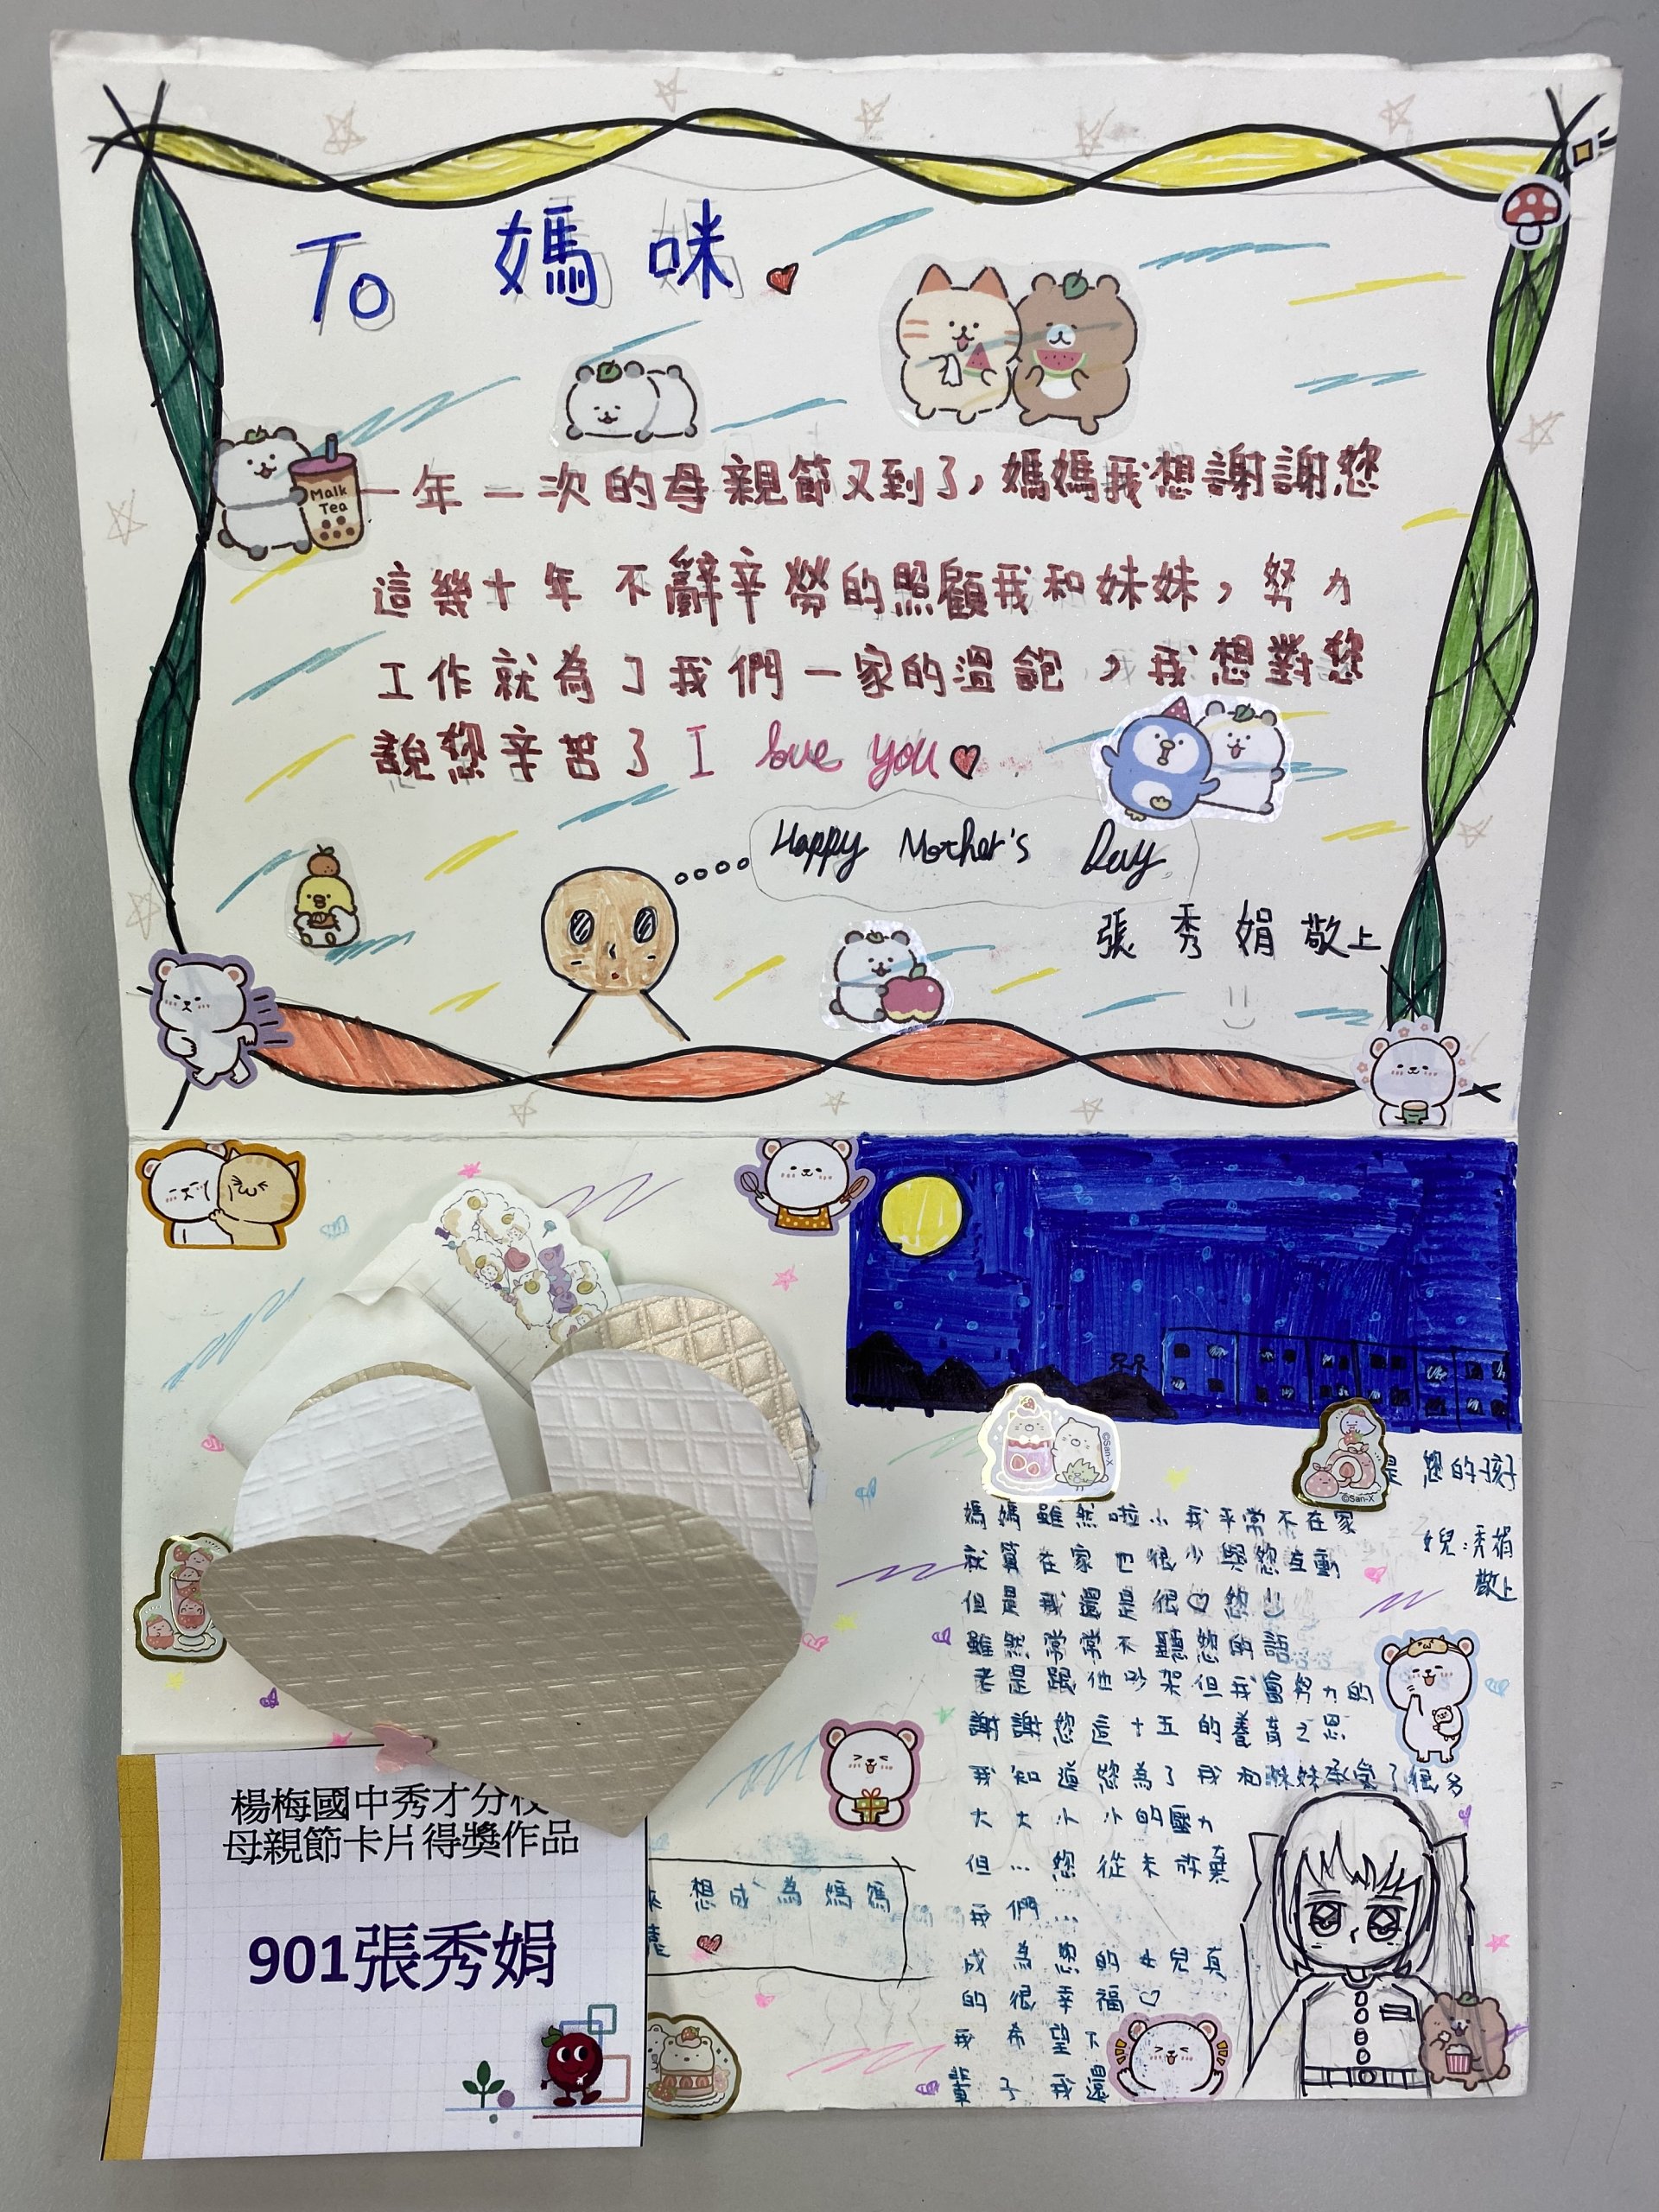 To 媽咪
Malk
Tea
一年一次的母親節又到了，媽媽我想謝謝您
這幾十年不辭辛勞的照顧我和妹妹，努力
工作就為了我們一家的溫飽，我想對您
說您辛苦了 I love you
Happy Mother's Day
張秀娟敬上
©San-X
©San-X
是您的孩子
媽媽雖然啦小我平常不在家
就算在家也很少與您互動
但是我還是很♡您
雖然常常不聽您的話
老是跟他吵架但我會努力的
謝謝您這十五的養育之恩
我知道您為了我和妹妹承受了很多
大大小小的壓力
但…您從未放棄
我們…
成為您的女兒真
的很幸福♡
我希望下
輩子我還
女兒：秀娟
敬上
想成為媽媽
楊梅國中秀才分校
母親節卡片得獎作品
901張秀娟